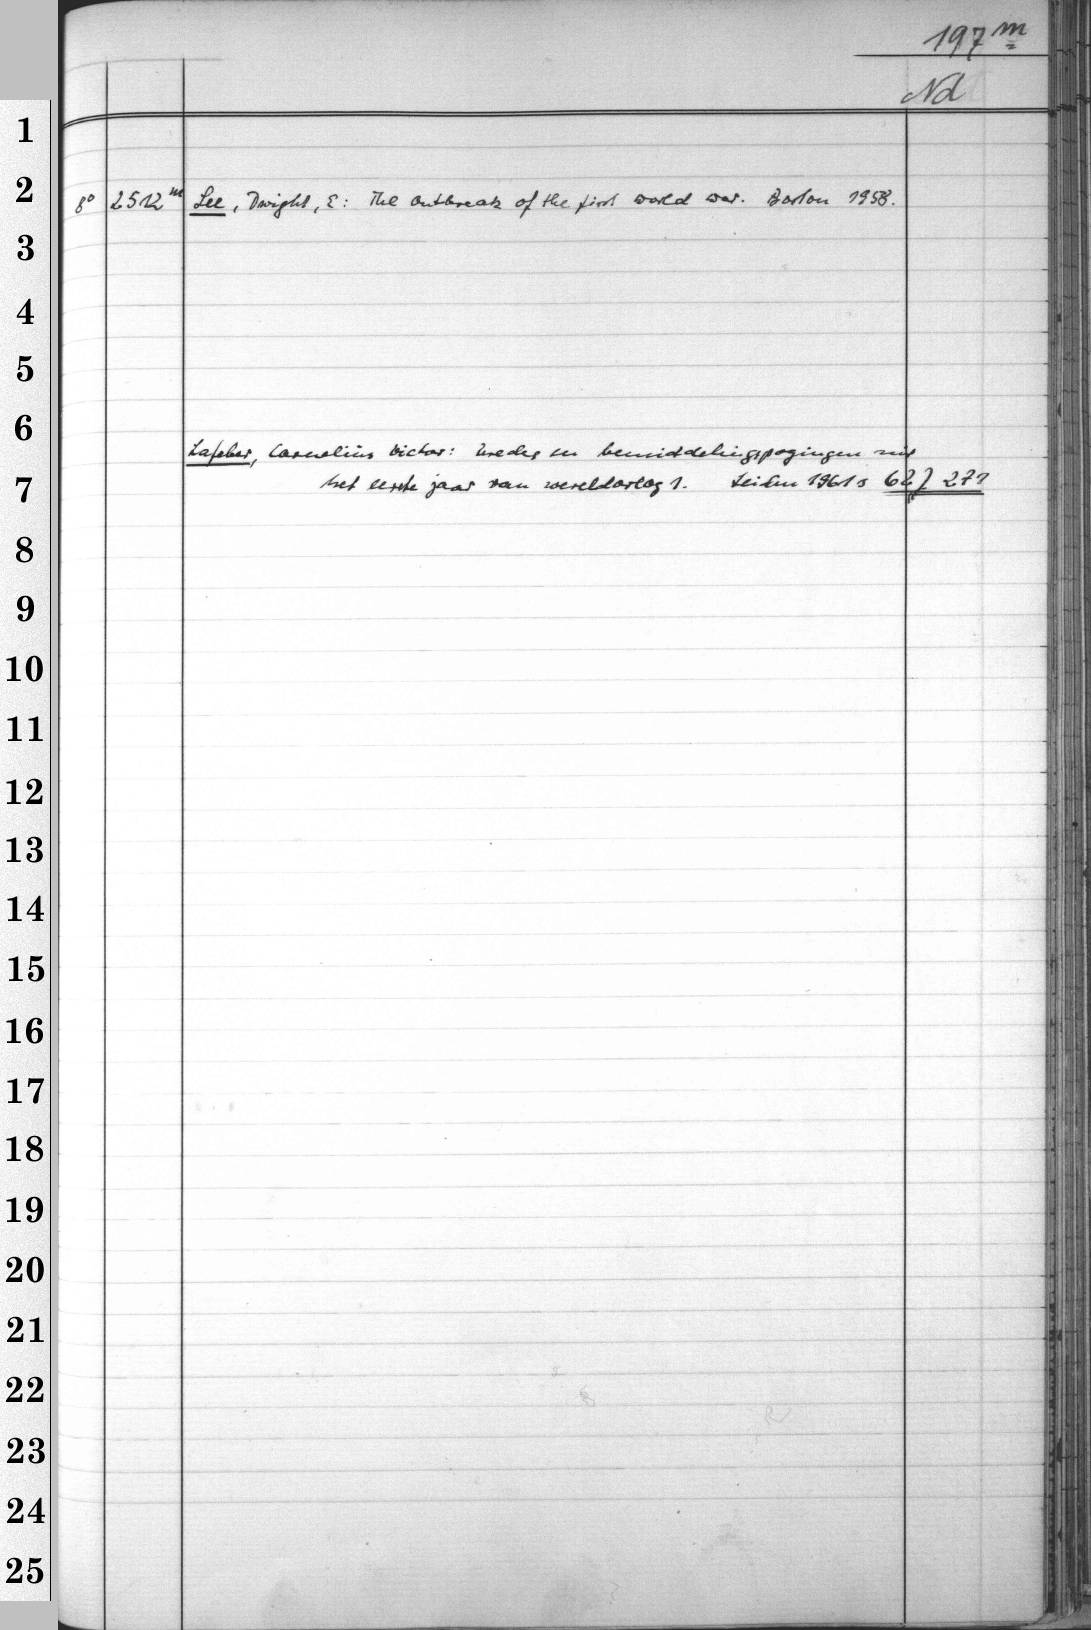 197 m
Nd
1
2
8° 2512 m Lee, Dwight, E: The outbreak of the first world war. Boston 1958.
3
4
5
6
Lafeber, Cornelius Victor: Vredes en bemiddelingspogingen uit
7
het eerste jaar van wereldoorlog 1. Leiden 1961 62 271
8
9
10
11
12
13
14
15
16
17
18
19
20
21
22
23
24
25